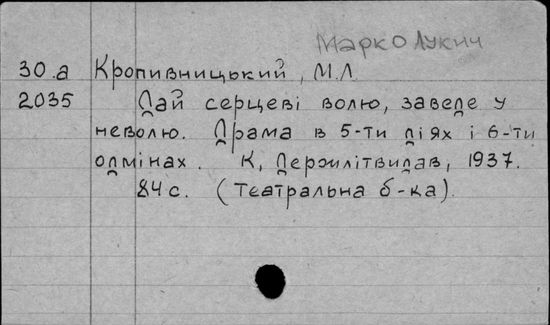 Марко Лукич
30.а Кропивницький, М.Л.
2035 Дай серцеві волю, заведе у
неволю. Драма в 5-ти діях і 6-ти
одмінах. К, Держлітвидав, 1937.
84 с. (Театральна б-ка).